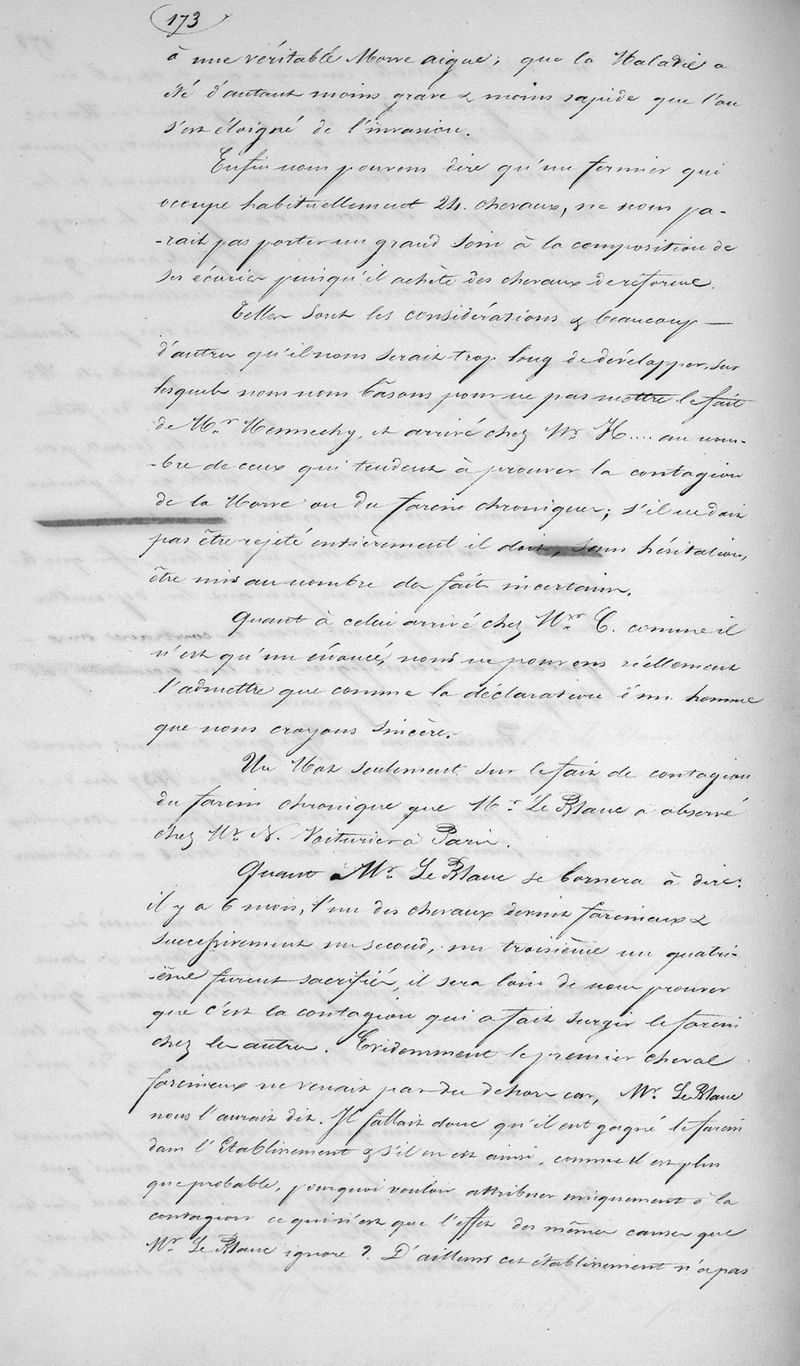 173
à une véritable Morve aigue; que la Maladie a
été d'autant moins grave & moins rapide que l'on
s'est éloigné de l'invasion.
Enfin nous pouvons dire qu'un fermier qui
occupe habituellement 24. chevaux, ne nous pa-
-rait pas porter un grand soin à la composition de
ses écuries puisqu'il achète des chevaux de réforme.
Telles sont les considérations & beaucoup —
d'autres qu'il nous serait trop long de développer, sur
lesquels nous nous bâsons pour ne pas mettre le fait
de Mr Hennechy, et arrivé chez Mr H.... au nom-
-bre de ceux qui tendent à prouver la contagion
de la Morve ou du farcin chronique; s'il ne doit
pas être rejeté entièrement il doit, sans hésitation,
être mis au nombre des faits incertains.
Quant à celui arrivé chez Mr C. comme il
n'est qu'un énoncé, nous ne pouvons réellement
l'admettre que comme la déclaration d'un homme
que nous croyons sincère.
Un Mot seulement sur le fait de contagion
du farcin chronique que Mr Le Blanc a observé
chez Mr N. Voiturier à Paris.
Quant à Mr Le Blanc se bornera à dire:
il y a 6 mois, l'un des chevaux devint farcineux &
successivement un second, un troisième un quatri-
-ème furent sacrifiés, il sera loin de nous prouver
que c'est la contagion qui a fait surgir le farcin
chez les autres. Evidemment le premier cheval
farcineux ne venait pas du dehors car, Mr Le Blanc
nous l'aurait dit. Il fallait donc qu'il eut gagné le farcin
dans l'Etablissement & s'il en est ainsi, comme il est plus
que probable, pourquoi vouloir attribuer uniquement à la
contagion ce qui n'est que l'effet des mêmes causes que
Mr Le Blanc ignore? D'ailleurs cet établissement n'a pas